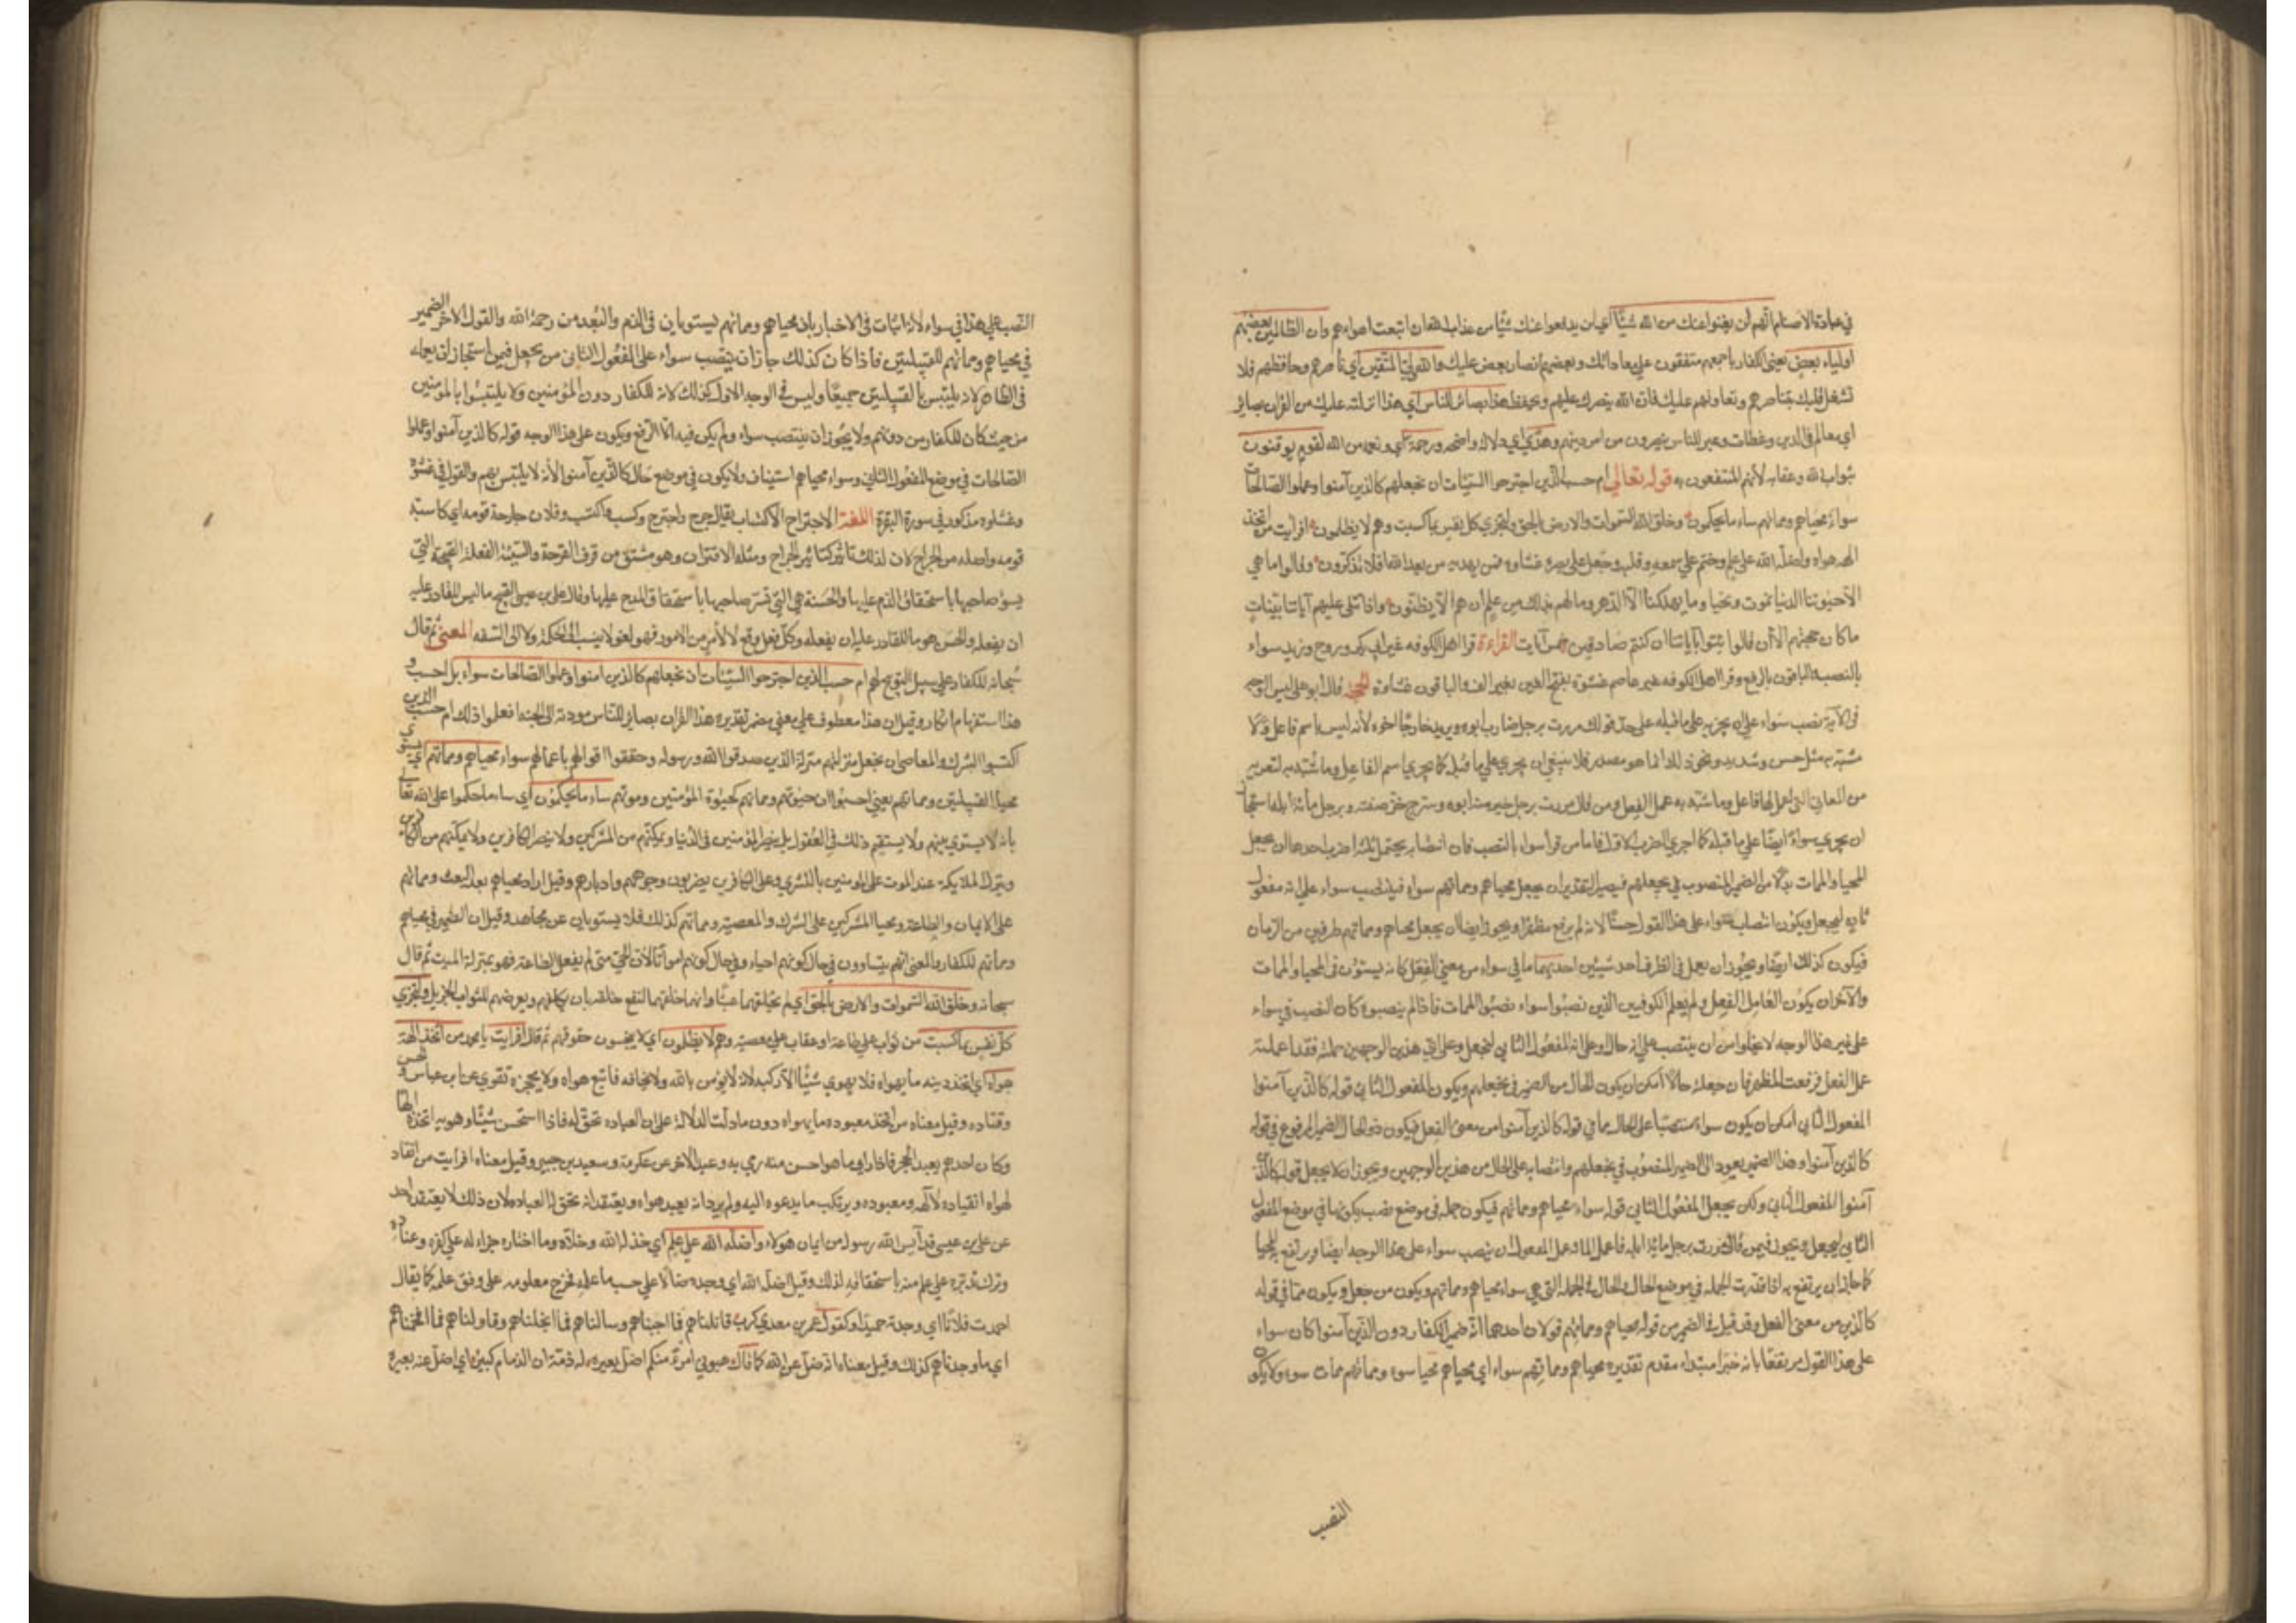 في عبادة الاصنام انهم لن يغنوا عنك من الله شيئا اي لن يدفعوا عنك شيئا من عذاب الله ان اتبعت اهواءهم وان الظالمين بعضهم
اولياء بعض يعني الكفار باجمعهم متفقون على معاداتك وبعضهم انصار بعض عليك والله ولي المتقين اي ناصرهم وحافظهم فلا
تشغل قلبك بتناصرهم وتعاونهم عليك فان الله ينصرك عليهم ويحفظك هذا بصائر للناس اي هذا الذي انزلته عليك من القرآن بصائر
اي معالم في الدين وعظات وعبر للناس يبصرون من امر دينهم وهدى اي دلالة واضحة ورحمة اي ونعمة من الله لقوم يوقنون
بثواب الله وعقابه لانهم المنتفعون به قوله تعالى ام حسب الذين اجترحوا السيئات ان نجعلهم كالذين آمنوا وعملوا الصالحات
سواء محياهم ومماتهم ساء ما يحكمون وخلق الله السموات والارض بالحق ولتجزى كل نفس بما كسبت وهم لا يظلمون افرايت من اتخذ
الهه هواه واضله الله على علم وختم على سمعه وقلبه وجعل على بصره غشاوة فمن يهديه من بعد الله افلا تذكرون وقالوا ما هي
الا حيوتنا الدنيا نموت ونحيا وما يهلكنا الا الدهر وما لهم بذلك من علم ان هم الا يظنون واذا تتلى عليهم آياتنا بينات
ما كان حجتهم الا ان قالوا ائتوا بآبائنا ان كنتم صادقين خمس آيات القراءة قرا اهل الكوفه غير ابي بكر وروح وزيد سواء
بالنصب والباقون بالرفع وقرا اهل الكوفه غير عاصم غشوة بفتح الغين بغير الف والباقون غشاوة الحجة قال ابو علي ليس الوجه
في الآية نصب سواء على ان يجريه على ما قبله على حد قولك مررت برجل ضارب ابوه وبزيد خارجا اخوه لانه ليس باسم فاعل ولا
مشبه به مثل حسن وشديد ونحو ذلك انما هو مصدر فلا ينبغي ان يجري على ما قبله كما يجري اسم الفاعل وما شبه به لتعريه
من المعاني التي اعمل لها فاعل وما شبه به عمل الفعل ومن قال مررت برجل خير منه ابوه وسرج خز صفته وبرجل مائة ابله استجاز
ان يجري سواء ايضا على ما قبله كما اجرى الضرب الاول فاما من قرأ سواء بالنصب فان انتصابه يحتمل ثلثة اضرب احدها ان يجعل
المحيا والممات بدلا من الضمير المنصوب في نجعلهم فيصير التقدير ان نجعل محياهم ومماتهم سواء فينتصب سواء على انه مفعول
ثان لنجعل ويكون انتصاب سواء على هذا القول حسنا لانه لم يرفع مظهرا ويجوز ايضا ان يجعل محياهم ومماتهم ظرفين من الزمان
فيكون كذلك ايضا ويجوز ان يعمل في الظرف احد شيئين احدهما ما في سواء من معنى الفعل كانه يستوون في المحيا والممات
والآخر ان يكون العامل الفعل ولم يعلم الكوفيين الذين نصبوا سواء نصبوا الممات فاذا لم ينصبوه كان النصب في سواء
على غير هذا الوجه لا يخلوا من ان ينتصب على انه حال او على انه المفعول الثاني لنجعل وعلى اي هذين الوجهين حملته فقد اعملته
عمل الفعل فرفعت المظهر فان جعلته حالا امكن ان يكون الحال من الضمير في نجعلهم ويكون المفعول الثاني قوله كالذين آمنوا
المفعول الثاني امكن ان يكون سواء منتصبا على الحال مما في قوله كالذين آمنوا من معنى الفعل فيكون ذو الحال الضمير المرفوع في قوله
كالذين آمنوا وهذا الضمير يعود الى الضمير المنصوب في نجعلهم وانتصابه على الحال من هذين الوجهين ويجوز ان لا يجعل قوله كالذين
آمنوا المفعول الثاني ولكن يجعل المفعول الثاني قوله سواء محياهم ومماتهم فيكون جملة في موضع نصب بكونها في موضع المفعول
الثاني لنجعل ويجوز فيمن قال مررت برجل مائة ابله فاعمل المائة عمل الفعل ان ينصب سواء على هذا الوجه ايضا ويرتفع به المحيا
كما جاز ان يرتفع به اذا قدرت الجملة في موضع الحال والحال في الجملة التي هي سواء محياهم ومماتهم ويكون من جعل ويكون مما في قوله
كالذين من معنى الفعل وقد قيل في الضمير من قوله محياهم ومماتهم قولان احدهما انه ضمير للكفار دون الذين آمنوا كان سواء
على هذا القول مرتفعا بانه خبر ابتداء مقدم تقديره محياهم ومماتهم سواء اي محياهم محيا سوء ومماتهم ممات سوء ولا يكون
النصب
النصب على هذا في سواء لانه اثبات في الاخبار بان محياهم ومماتهم يستويان في الذم والبعد من رحمة الله والقول الآخر الضمير
في محياهم ومماتهم للقبيلتين فاذا كان كذلك جاز ان ينتصب سواء على المفعول الثاني من نجعل فيمن استجاز ان يعمله
في الظاهر لانه يلتبس بالقبيلتين جميعا وليس في الوجه الاول كذلك لانه للكفار دون المؤمنين ولا يلتبسوا بالمؤمنين
من حيث كان للكفار من دونهم ولا يجوز ان ينتصب سواء ولم يكن فيه الا الرفع ويكون على هذا الوجه قوله كالذين آمنوا وعملوا
الصالحات في موضع المفعول الثاني وسواء محياهم استيناف ولا يكون في موضع حال كالذين آمنوا لانه لا يلتبس بهم والقول في غشوة
وغشاوه مذكور في سورة البقرة اللغة الاجتراح الاكتساب يقال جرح واجترح وكسب واكتسب وفلان جارحة قومه اي كاسب
قومه واصله من الجراح لان لذلك تاثيرا كتاثير الجراح ومثله الاقتراف وهو مشتق من قرف القرحة والسيئة الفعلة القبيحة التي
يسوء صاحبها باستحقاق الذم عليها والحسنة هي التي تسر صاحبها باستحقاق المدح عليها وقال علي بن عيسى القبيح ما ليس للقادر عليه
ان يفعله والحسن هو ما للقادر عليه ان يفعله وكل فعل وقع لا لامر من الامور فهو لغو لا ينسب الى الحكمة ولا الى السفه المعنى ثم قال
سبحانه للكفار على سبيل التوبيخ لهم ام حسب الذين اجترحوا السيئات ان نجعلهم كالذين امنوا وعملوا الصالحات سواء بل احسب و
هذا استفهام انكار وقيل ان هذا معطوف على معنى مضمر تقديره هذا القرآن بصائر للناس مودية الى الجنة افعلوا ذلك ام حسب الذين
اكتسبوا الشرك والمعاصي ان نجعل منزلتهم منزلة الذين صدقوا الله ورسوله وحققوا اقوالهم باعمالهم سواء محياهم ومماتهم اي يستوي
محيا القبيلتين ومماتهم يعني احسبوا ان حيوتهم ومماتهم كحيوة المؤمنين وموتهم ساء ما يحكمون اي ساء ما حكموا على الله تعالى
بانه لا يستوي بينهم ولا يستقيم ذلك في العقول بل ينصر المؤمنين في الدنيا ويمكنهم من المشركين ولا ينصر الكافرين ولا يمكنهم من المؤمنين
وينزل الملائكة عند الموت على المؤمنين بالبشرى وعلى الكافرين يضربون وجوههم وادبارهم وقيل اراد محياهم بعد البعث ومماتهم
على الايمان والطاعة ومحيا المشركين على الشرك والمعصية ومماتهم كذلك فلا يستويان عن مجاهد وقيل ان الضمير في محياهم
ومماتهم للكفار والمعنى انهم يتساوون في حال كونهم احياء وفي حال كونهم امواتا لان الحي متى لم يفعل الطاعة فهو بمنزلة الميت ثم قال
سبحانه وخلق الله السموات والارض بالحق اي لم يخلقهما عبثا وانما خلقهما لنفع خلقه بان يكلفهم ويعرضهم للثواب الجزيل ولتجزى
كل نفس بما كسبت من ثواب على طاعة او عقاب على معصية وهم لا يظلمون اي لا يبخسون حقوقهم ثم قال افرايت يا محمد من اتخذ الهه
هواه اي اتخذ دينه ما يهواه فلا يهوي شيئا الا ركبه لانه لا يؤمن بالله ولا يخافه فاتبع هواه ولا يحجزه تقوى عن ابن عباس والحسن
وقتاده وقيل معناه من اتخذ معبوده ما يهواه دون ما دلت الدلالة على ان العباده تحق له فاذا استحسن شيئا وهويه اتخذه الها
وكان احدهم يعبد الحجر فاذا راى ما هو احسن منه رمى به وعبد الآخر عن عكرمة وسعيد بن جبير وقيل معناه افرايت من انقاد
لهواه انقياده لآلهه ومعبوده ويرتكب ما يدعوه اليه ولم يرد انه يعبد هواه ويعتقد انه تحق له العباده لان ذلك لا يعتقده احد
عن علي بن عيسى قد آيس الله رسوله من ايمان هؤلاء واضله الله على علم اي خذله الله وخلاه وما اختاره جزاء له على كفره وعناده
وترك تدبره على علم منه باستحقاقه لذلك وقيل اضله الله اي وجده ضالا على حسب ما علمه فخرج معلومه على وفق علمه كما يقال
احمدت فلانا اي وجدته حميدا وكقول عمرو بن معدي كرب قاتلناهم فما اجبناهم وسالناهم فما ابخلناهم وقاولناهم فما افحمناهم
اي ما وجدناهم كذلك وقيل معناه انه ضل عن الله كما قال هبوني امرء منكم اضل بعيره له ذمة ان الذمام كبير اي اضل عنه بعيره